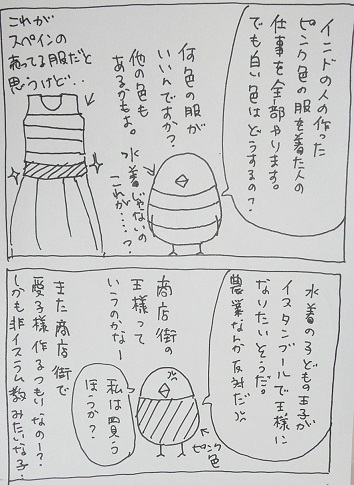 インドの人の作った
ピンク色の服を着た人の
仕事を全部やります。
でも白い色はどうするの?
何色の服が
いいんですか?
他の色も
あるかもよ。
水着じゃないの
これが……?
これが
スペインの
売ってる服だと
思うけど‥
水着の子どもの王子が
イスタンブールで王様に
なりたいそうだ。
農業なんか反対だ
商店街の
王様って
いうのかなー
ピンク色
私は買う
ほうか?
また商店街で
愛子様作るつもりなのー?
しかも非イスラム教みたいな子‥